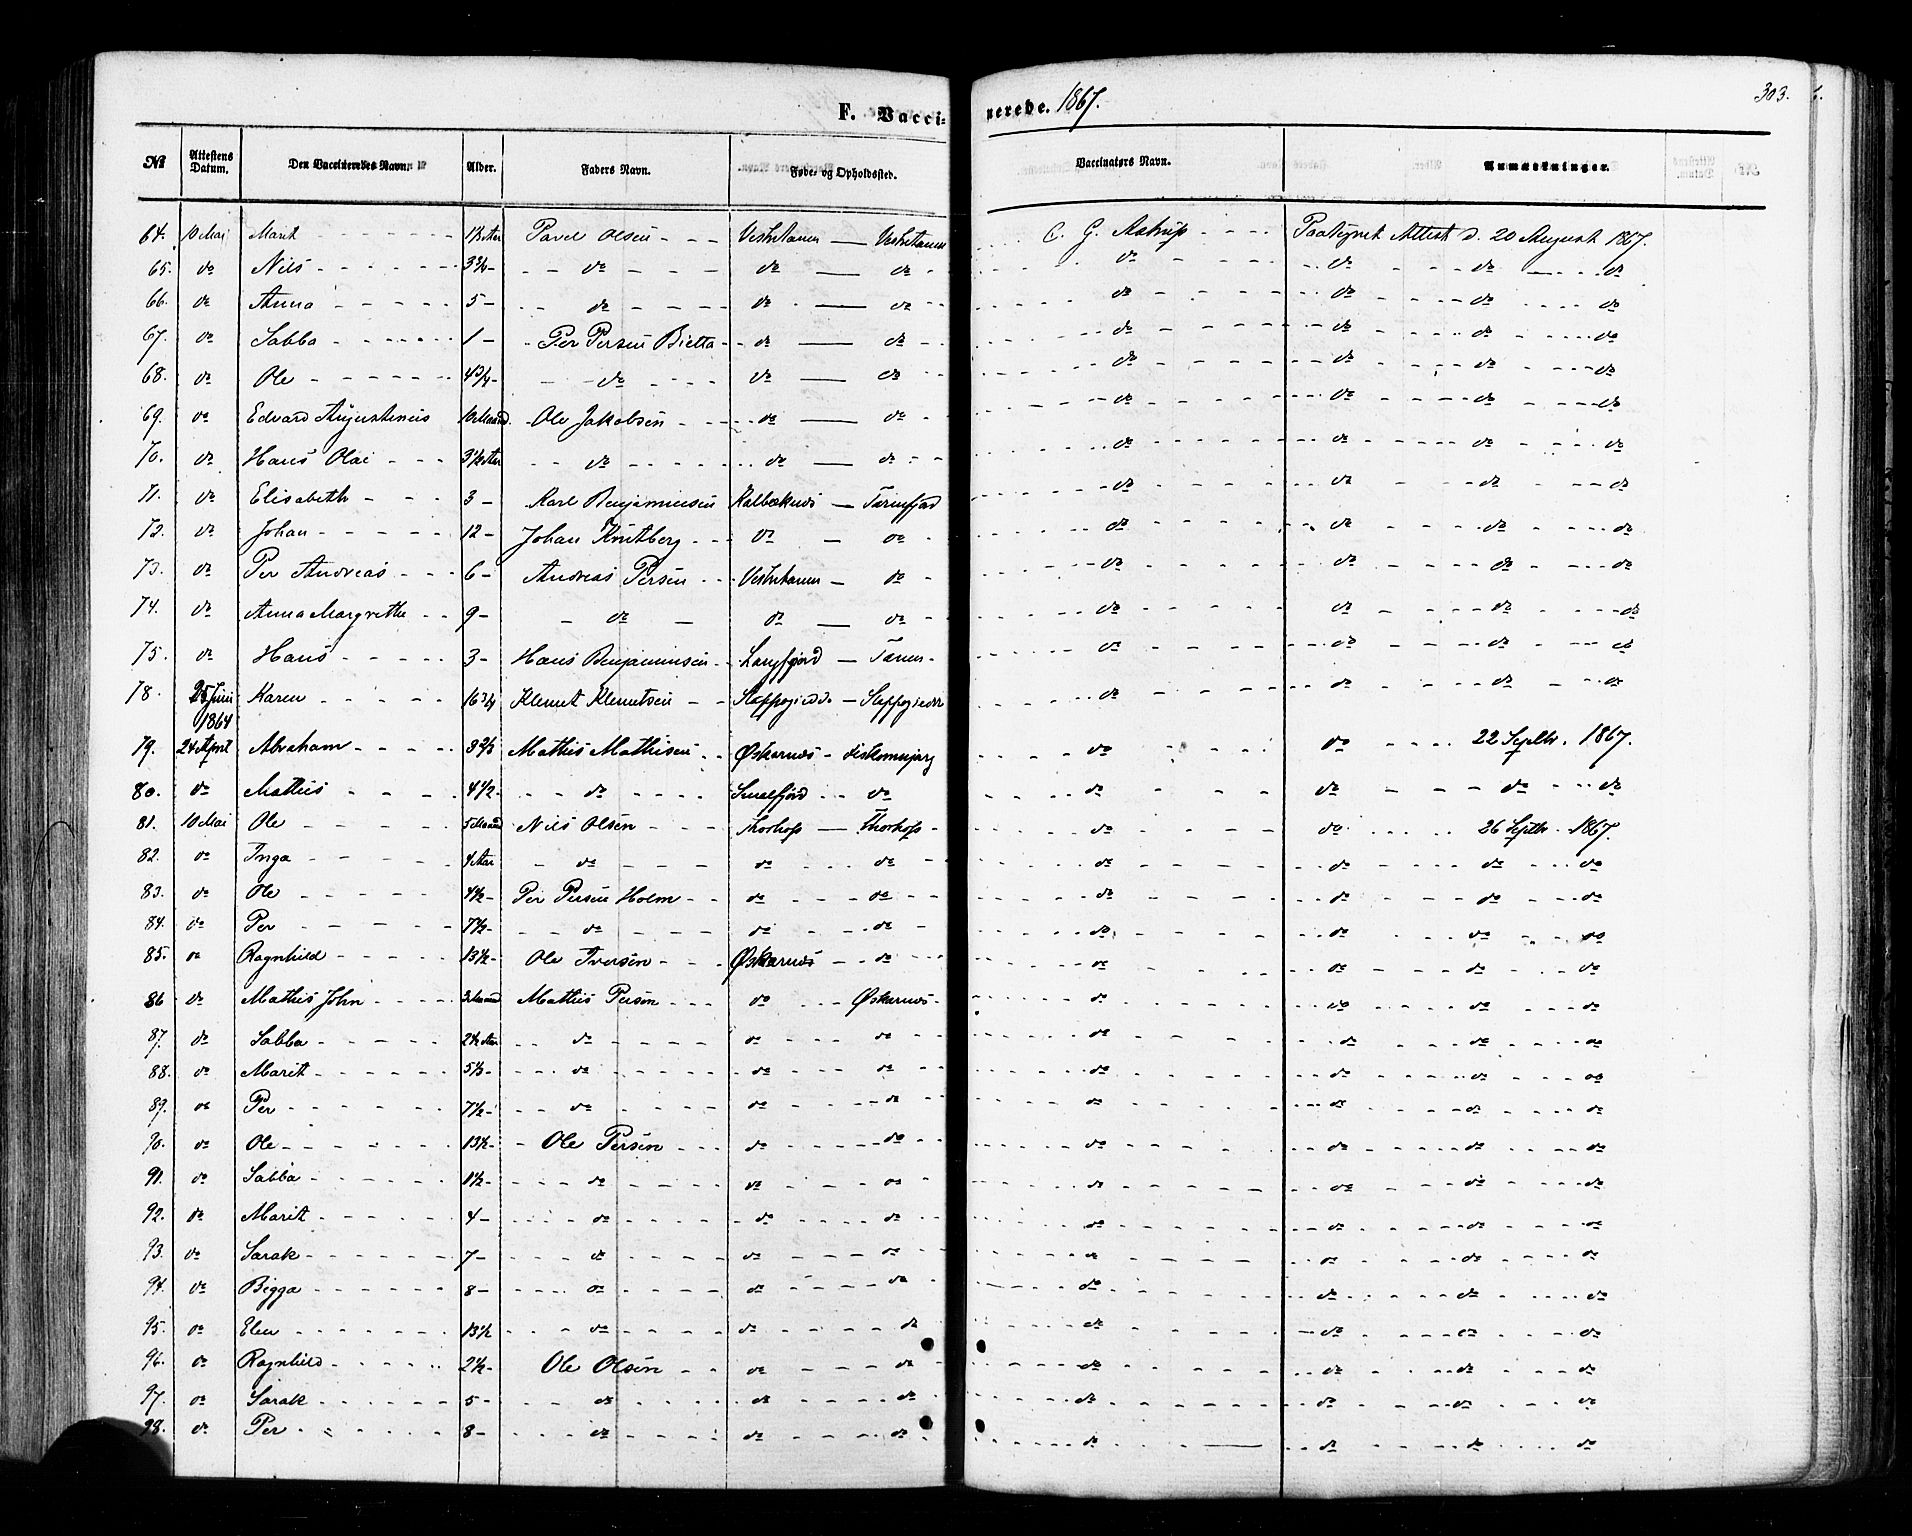 F. Vaccinerede. 1867.
303.
№ Attestens Datum. Den Vaccineredes Navn. Alder. Faders Navn. Føde- og Opholdssted. Vaccinators Navn. Anmærkninger.
64. 10 Mai Marit Pavel Olsen Vestertanen Vestertanen C. G. Astrup Paategnet Attest d. 20 August 1867.
65. do Nils do do do do do do do
66. do Anna 5 do do do do do do do
67. do Sabba 1 Per Persen Bietta do do do do do do
68. do Ole 4 3/4 do do do do do do do
69. do Edvard Augustinius 10 Maaned. Ole Jakobsen do do do do do do
70. do Hans Olai 3 1/2 Aar do do do do do do do
71. do Elisabeth 3 Karl Benjaminsen Kalbaknæs Tanenfjord do do do do
72. do Johan 12 Johan Knutberg do do do do do do
73. do Per Andreas 6 Andreas Persen Vestertanen do do do do do
74. do Anna Margrethe 9 do do do do do do do
75. do Hans 3 Hans Benjaminsen Langfjord Tanen do do do do
78. 25 Juni 1864 Karen 16 3/4 Klemet Klemetsen Stappogiedde Stappogiedde do do do do
79. 24 April Abraham Mathis Mathisen Øskarnæs do do 22 Septbr. 1867.
80. do Mathis 4 1/2 do Smalfjord do do do do do
81. 10 Mai Ole 5 Maaned Nils Olsen Thorhofs Thorhofs do do 26 Septbr. 1867.
82. do Inga 4 Aar do do do do do do do
83. do Ole 4 1/2 Per Persen Holm do do do do do do
84. do Per 7 1/2 do do do do do do do
85. do Ragnhild 13 1/2 Ole Iversen Øskarnæs do do do do do
86 do Mathis John 3 Maaned Mathis Persen do Øskarnæs do do do do
87. do Sabba 2 1/2 Aar do do do do do do do
88. do Marit do do do do do do do
89. do Per 7 1/2 do do do do do do do
90. do Ole 13 1/2 Ole Persen do do do do do do
91. do Sabba 1 1/2 do do do do do do do
92. do Marit 4 do do do do do do do
93. do Sarak 7 do do do do do do do
94. do Bigga 8 do do do do do do do
95. do Elen 13 1/2 do do do do do do do
96. do Ragnhild 2 1/2 Ole Olsen do do do do do do
97. do Sarak 5 do do do do do do do
98. do Per 8 do do do do do do do